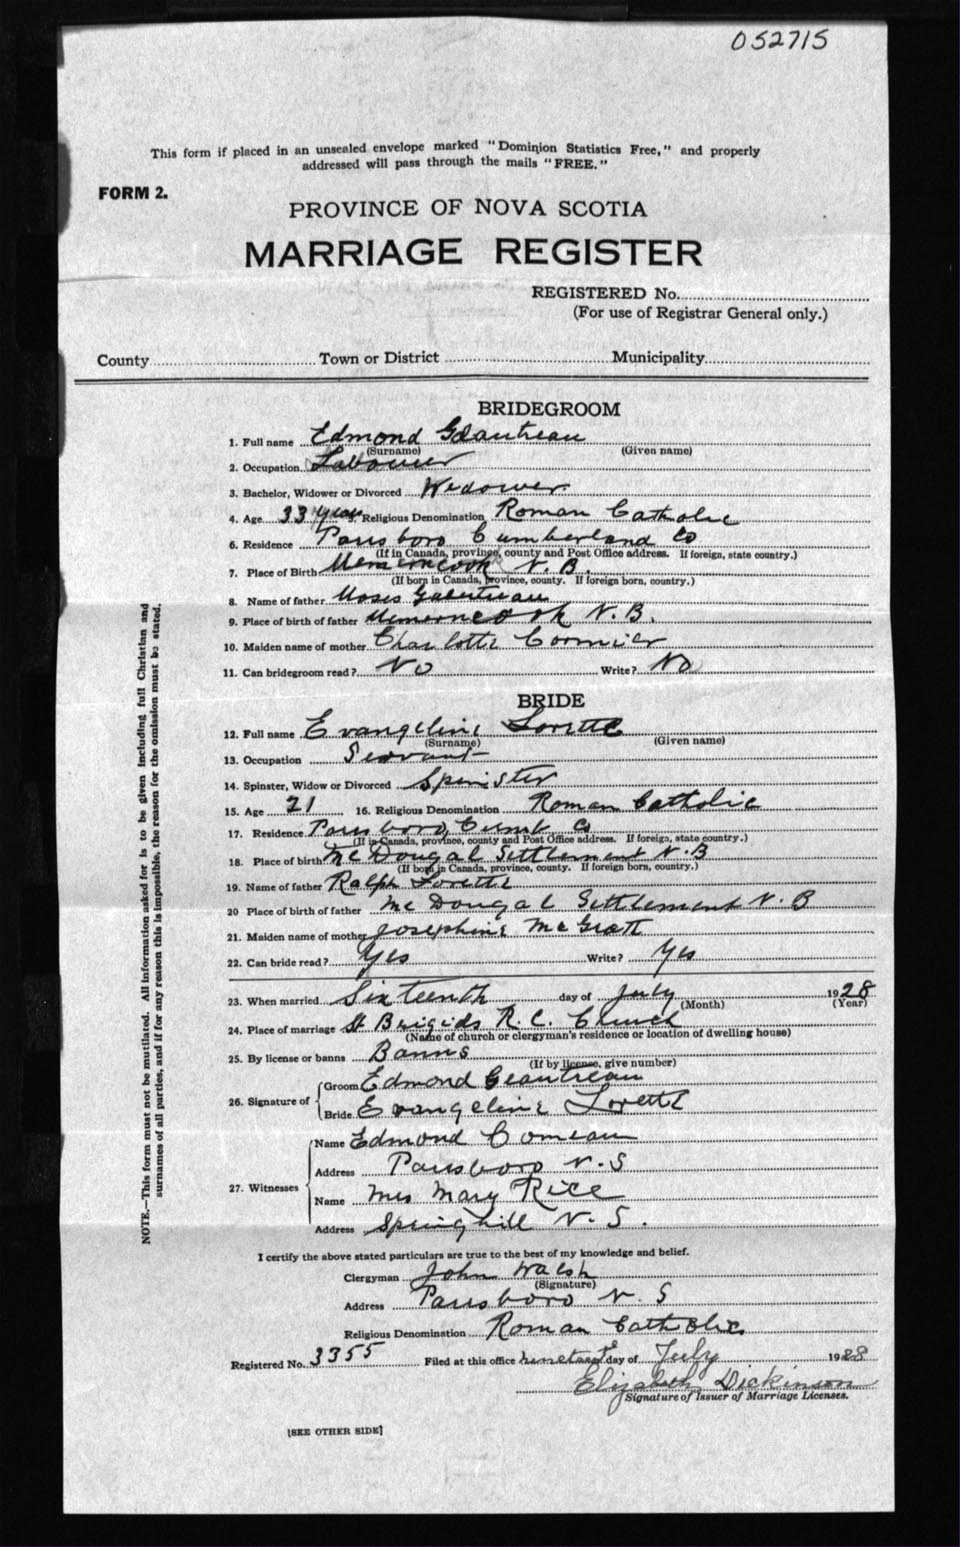 052715
This form if placed in an unsealed envelope marked "Dominion Statistics Free," and properly
addressed will pass through the mails "FREE."
FORM 2.
PROVINCE OF NOVA SCOTIA
MARRIAGE REGISTER
REGISTERED No.
(For use of Registrar General only.)
County Town or District Municipality
BRIDEGROOM
1. Full name Edmond Geautreau
(Surname) (Given name)
2. Occupation Labourer
3. Bachelor, Widower or Divorced Widower
4. Age 33 years 5. Religious Denomination Roman Catholic
6. Residence Parrsboro Cumberland Co
(If in Canada, province, county and Post Office address. If foreign, state country.)
7. Place of Birth Memramcook N. B.
(If born in Canada, province, county. If foreign born, country.)
8. Name of father Moses
9. Place of birth of father Memramcook N. B.
10. Maiden name of mother Charlotte Cormier
11. Can bridegroom read? No Write? No
BRIDE
12. Full name Evangeline Lorette
(Surname) (Given name)
13. Occupation Servant
14. Spinster, Widow or Divorced Spinster
15. Age 21 16. Religious Denomination Roman Catholic
17. Residence Parrsboro, Cumb Co
(If in Canada, province, county and Post Office address. If foreign, state country.)
18. Place of birth McDougal Settlement N.B
(If born in Canada, province, county. If foreign born, country.)
19. Name of father Ralph Lorette
20 Place of birth of father McDougal Settlement N. B
21. Maiden name of mother Josephine McGratt
22. Can bride read? Yes Write? Yes
23. When married Sixteenth day of July 1928
(Month) (Year)
24. Place of marriage St Brigids R. C. Church
(Name of church or clergyman's residence or location of dwelling house)
25. By license or banns Banns
(If by license, give number)
26. Signature of
Groom Edmond Geautreau
Bride Evangeline Lorette
27. Witnesses
Name Edmond Comeau
Address Parrsboro N. S
Name Mrs Mary Rice
Address Springhill N. S.
I certify the above stated particulars are true to the best of my knowledge and belief.
Clergyman John Walsh
(Signature)
Address Parrsboro N. S
Religious Denomination Roman Catholic
Registered No. 3355 Filed at this office day of July 1928
Elizabeth Dickinson
Signature of Issuer of Marriage Licenses.
[SEE OTHER SIDE]
NOTE.—This form must not be mutilated. All information asked for is to be given including full Christian and
surnames of all parties, and if for any reason this is impossible, the reason for the omission must be stated.